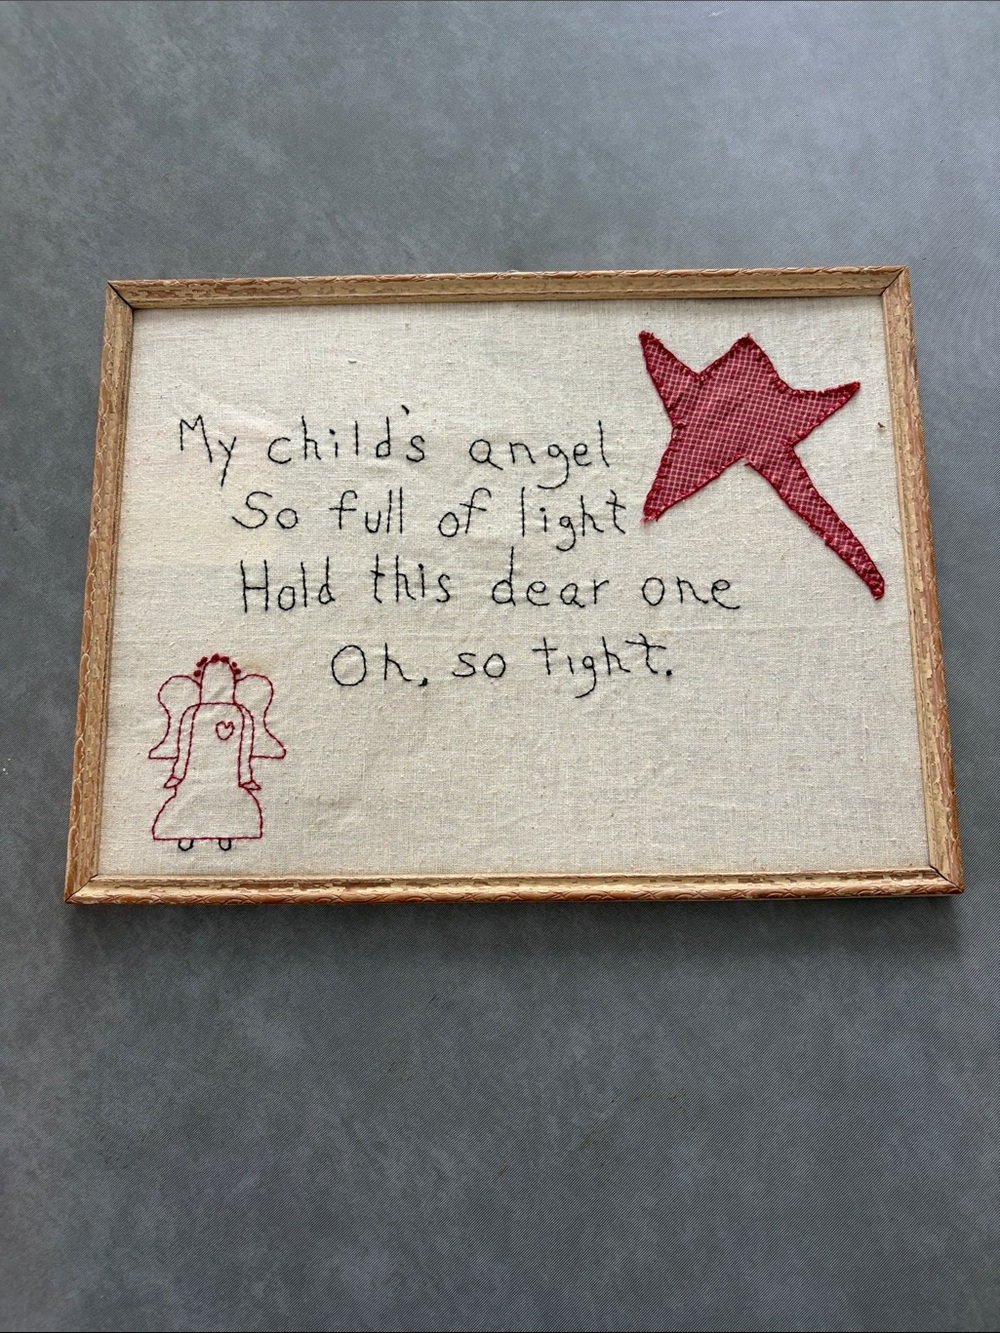 My child's angel
So full of light
Hold this dear one
Oh, so tight.